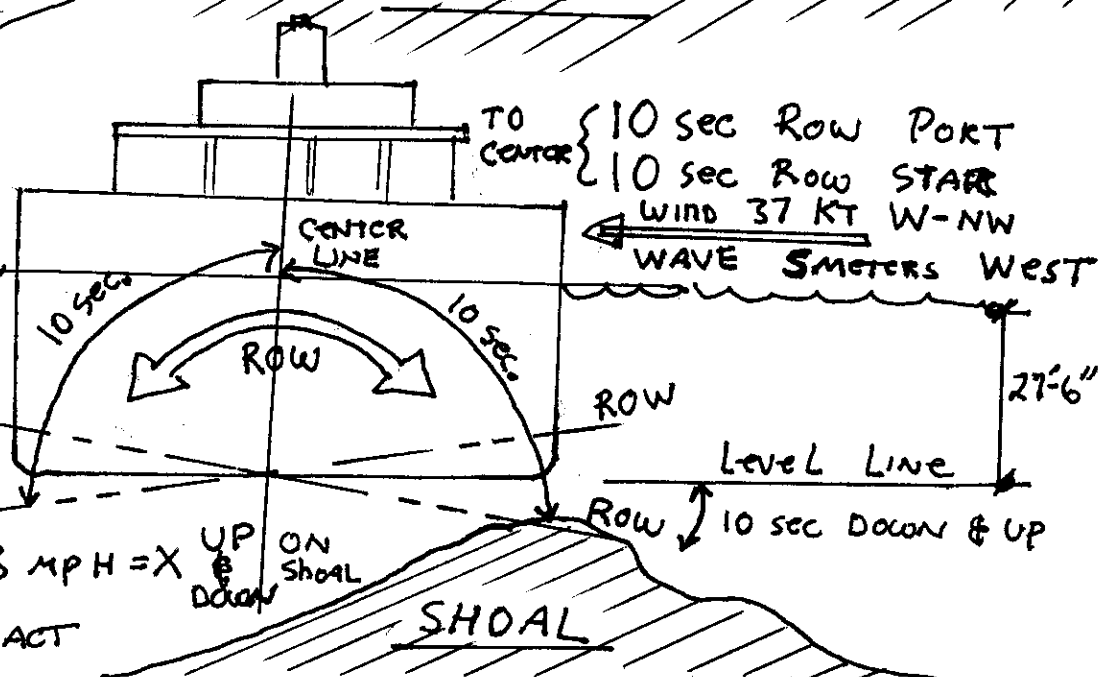 TO CENTER { 10 sec Row PORT
10 sec Row STARB
WIND 37 KT W-NW
WAVE 5 METERS WEST
CENTER LINE
10 sec.
10 sec.
ROW
27'-6"
ROW
LEVEL LINE
ROW 10 sec DOWN & UP
MPH = X UP & DOWN ON SHOAL
ACT
SHOAL